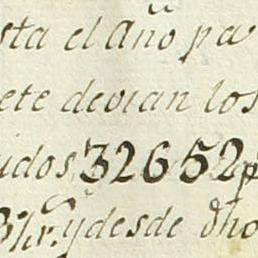 sta el año pa
ete devian los
idos, 32652 p
y desde dho